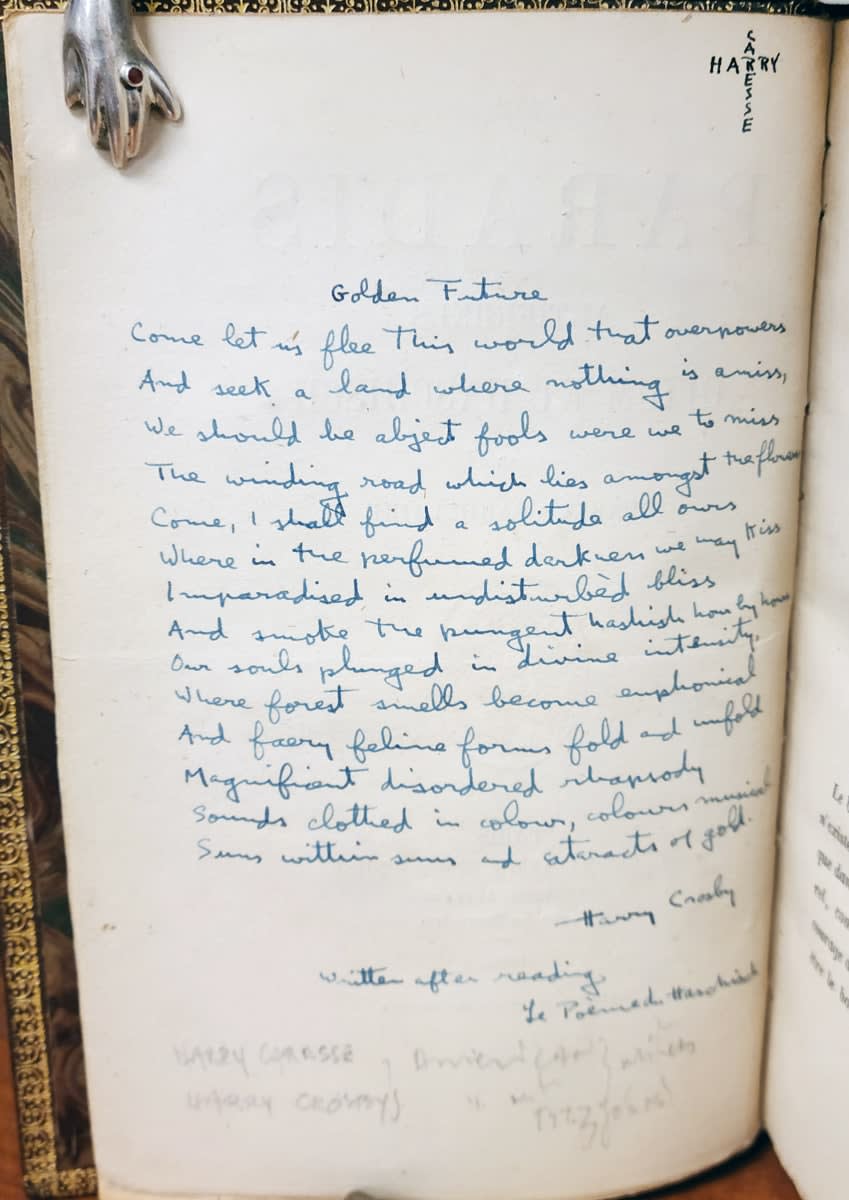 CARESSE
HARRY
PARADIS
Golden Future
Come let us flee This world that overpowers
And seek a land where nothing is amiss,
We should be abject fools were we to miss
The winding road which lies amongst the flowers
Come, I shall find a solitude all ours
Where in the perfumed darkness we may kiss
Imparadised in undisturbèd bliss
And smoke the pungent hashish hour by hour
Our souls plunged in divine intensity,
Where forest smells become euphonical
And faery feline forms fold and unfold
Magnificent disordered rhapsody
Sounds clothed in colours, colours musical
Suns within suns and cataracts of gold.
Harry Crosby
written after reading
Le Poème du Haschisch
HARRY CARESSE
HARRY CROSBY
Le
n'existe
que dan